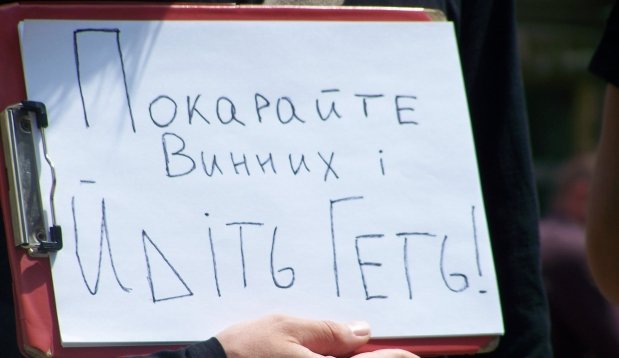 Покарайте
Винних і
Йдіть Геть!